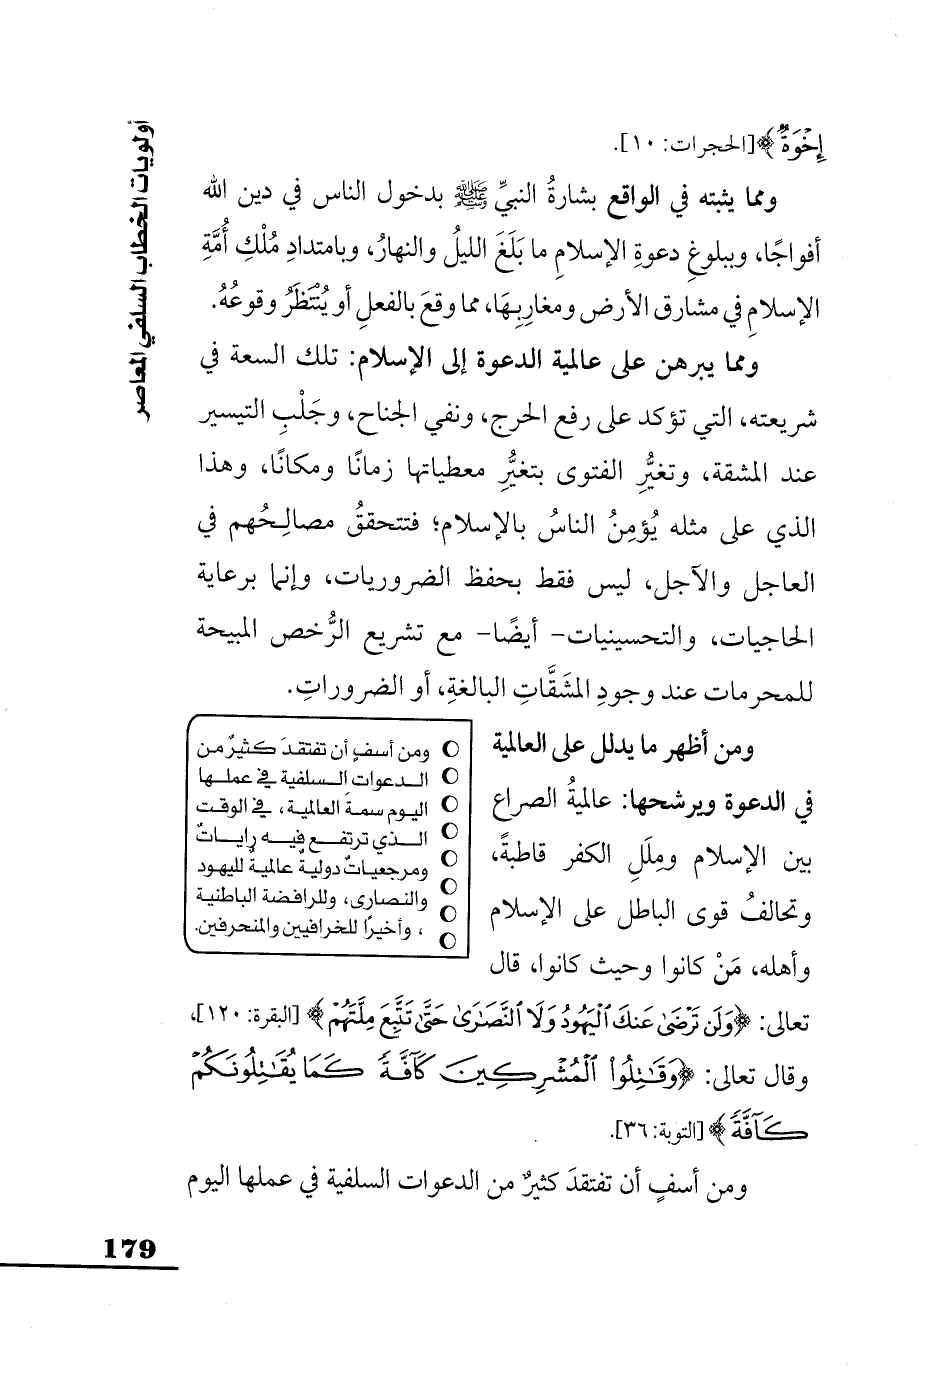 أولويات الخطاب السلفي المعاصر
إِخْوَةٌ﴾ [الحجرات: ١٠].
ومما يثبته في الواقع بشارةُ النبيِّ ﷺ بدخول الناس في دين الله
أفواجًا، وببلوغِ دعوةِ الإسلامِ ما بَلَغَ الليلُ والنهارُ، وبامتدادِ مُلْكِ أُمَّةِ
الإسلامِ في مشارق الأرض ومغارِبِهَا، مما وقعَ بالفعلِ أو يُنْتَظَرُ وقوعُهُ.
ومما يبرهن على عالمية الدعوة إلى الإسلام: تلك السعة في
شريعته، التي تؤكد على رفع الحرج، ونفي الجناح، وجَلْبِ التيسير
عند المشقة، وتغيُّرِ الفتوى بتغيُّرِ معطياتها زمانًا ومكانًا، وهذا
الذي على مثله يُؤمِنُ الناسُ بالإسلام؛ فتتحققُ مصالِحُهم في
العاجل والآجل، ليس فقط بحفظ الضروريات، وإنما برعاية
الحاجيات، والتحسينيات- أيضًا- مع تشريع الرُّخص المبيحة
للمحرمات عند وجودِ المشَقَّاتِ البالغةِ، أو الضروراتِ.
ومن أظهر ما يدلل على العالمية
في الدعوة ويرشحها: عالميةُ الصراع
بين الإسلام ومِلَلِ الكفر قاطبةً،
وتحالفُ قوى الباطل على الإسلام
وأهله، مَنْ كانوا وحيث كانوا، قال
ومن أسفٍ أن تفتقدَ كثيرٌ من
الدعوات السلفية في عملها
اليوم سمةَ العالمية، في الوقت
الذي ترتفع فيه رايـاتٌ
ومرجعياتٌ دوليةٌ عالميةٌ لليهود
والنصارى، وللرافضة الباطنية
، وأخيرًا للخرافيين والمنحرفين.
تعالى: ﴿وَلَن تَرْضَىٰ عَنكَ ٱلْيَهُودُ وَلَا ٱلنَّصَـٰرَىٰ حَتَّىٰ تَتَّبِعَ مِلَّتَهُمْ﴾ [البقرة: ١٢٠]،
وقال تعالى: ﴿وَقَـٰتِلُوا۟ ٱلْمُشْرِكِينَ كَآفَّةً كَمَا يُقَـٰتِلُونَكُمْ
كَآفَّةً﴾ [التوبة: ٣٦].
ومن أسفٍ أن تفتقدَ كثيرٌ من الدعوات السلفية في عملها اليوم
179